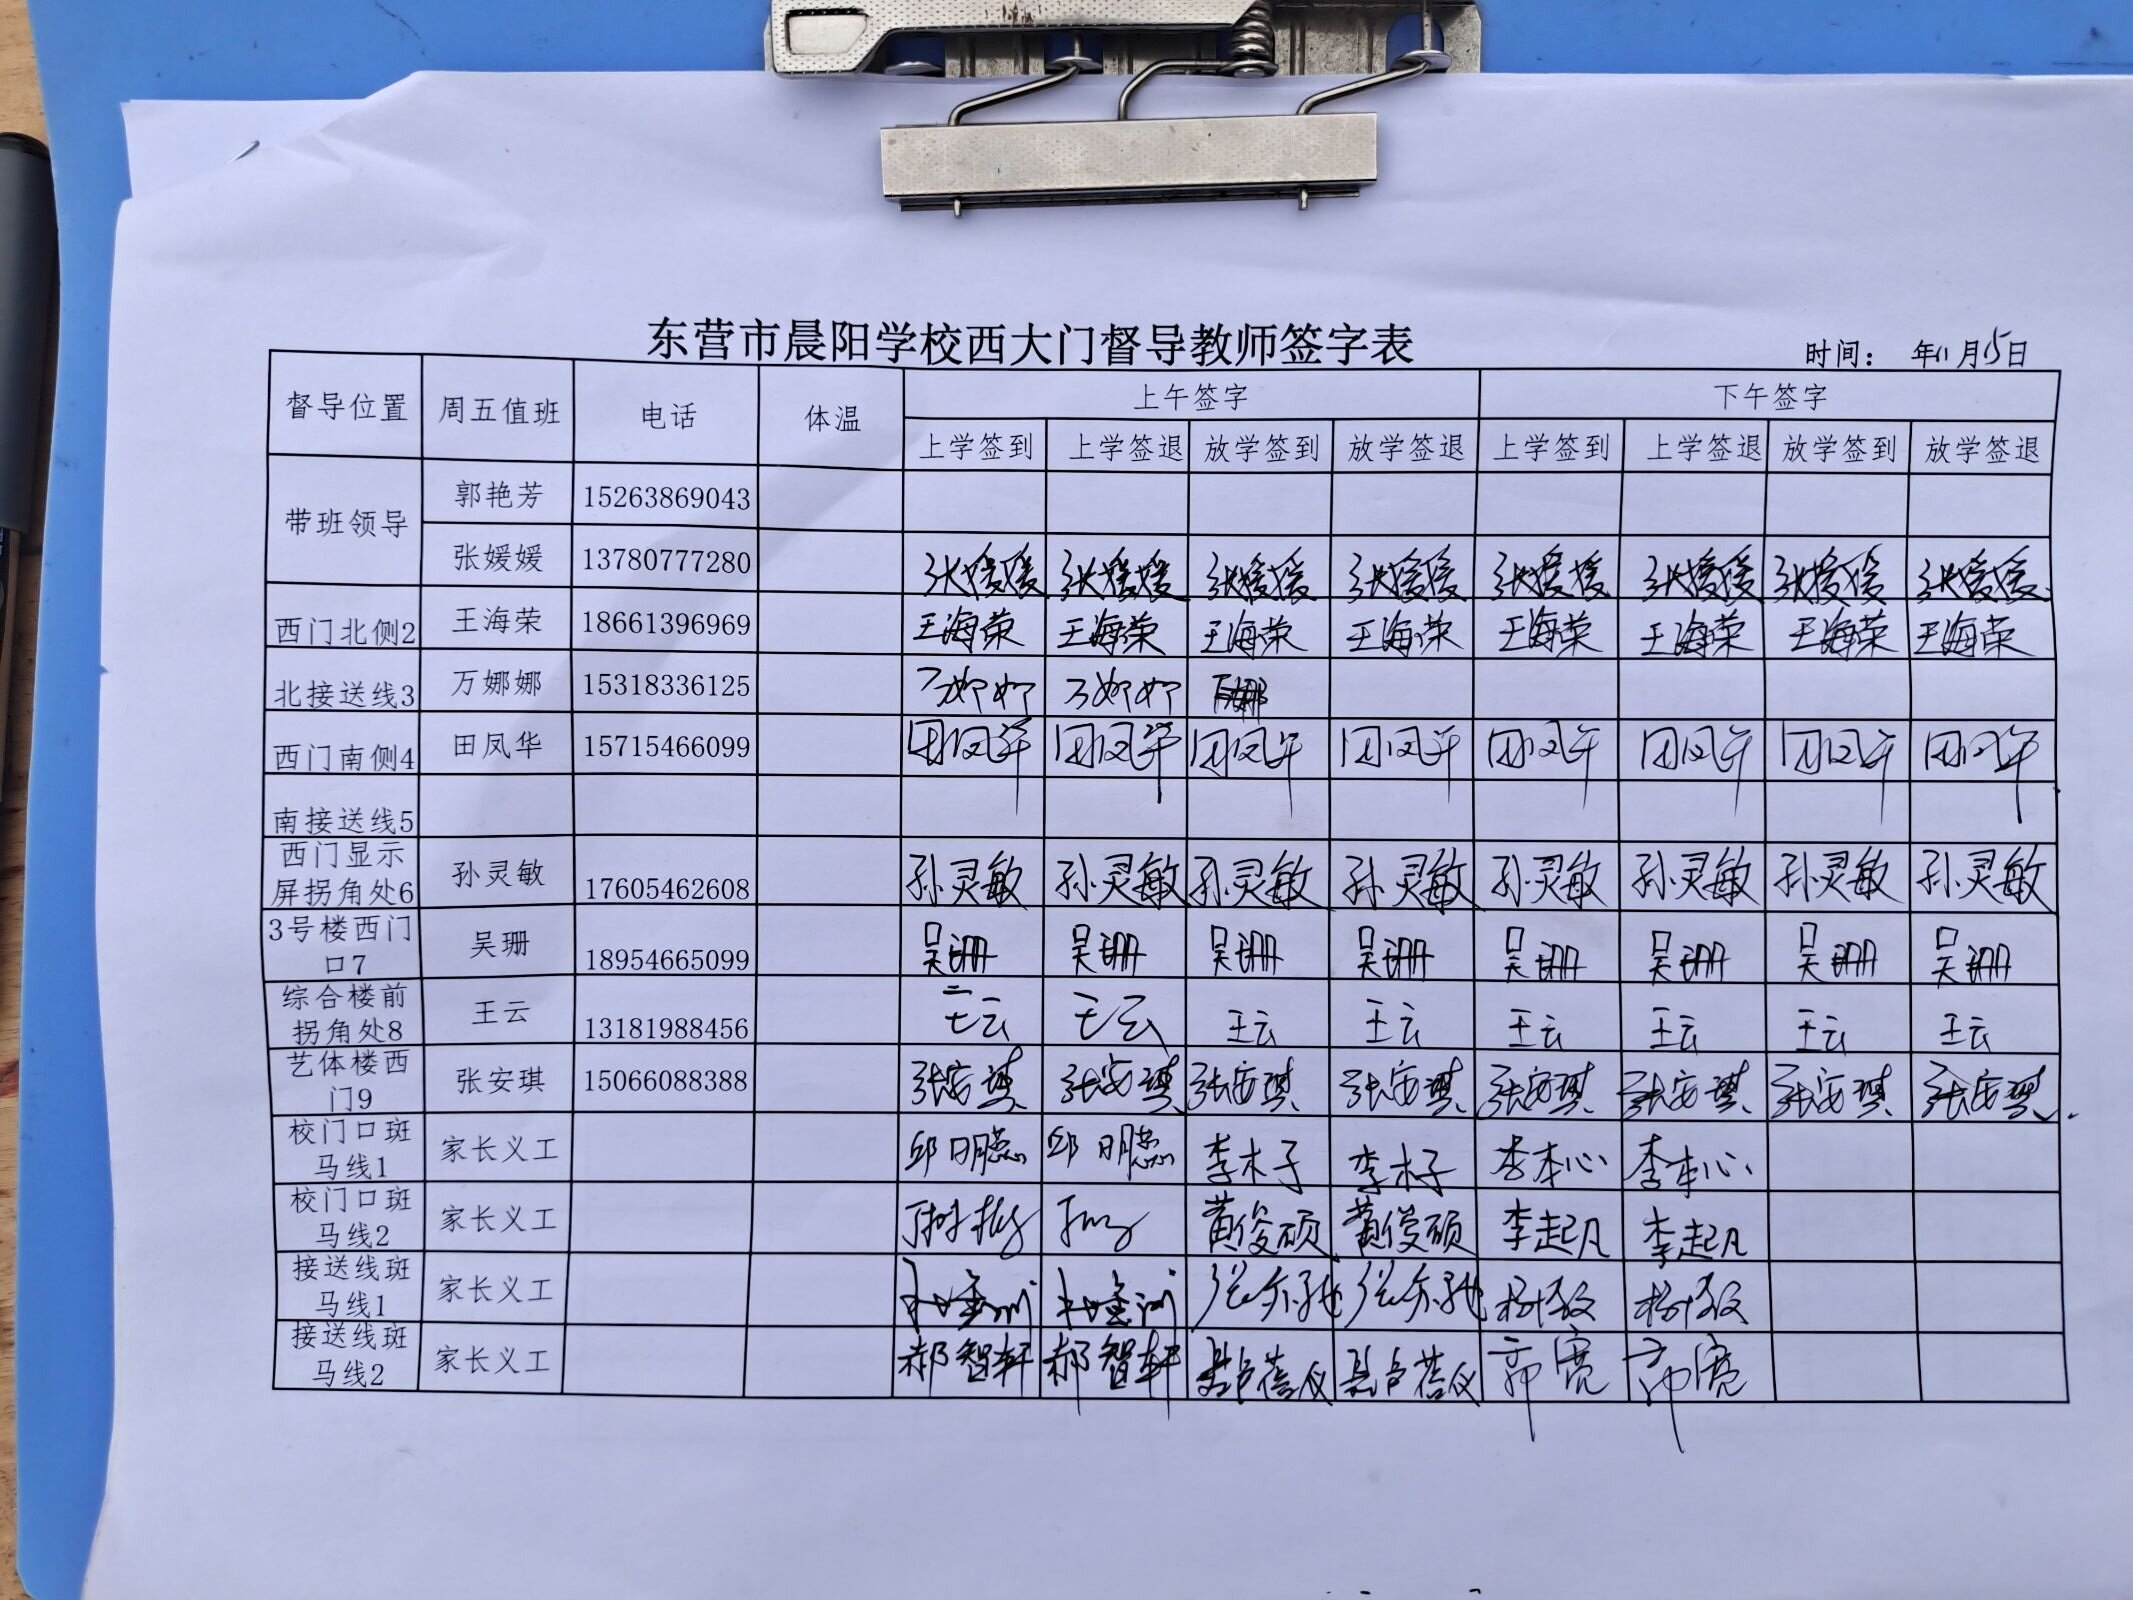 东营市晨阳学校西大门督导教师签字表
时间： 年11月15日
督导位置 周五值班 电话 体温 上午签字 下午签字
上学签到 上学签退 放学签到 放学签退 上学签到 上学签退 放学签到 放学签退
带班领导 郭艳芳 15263869043
张媛媛 13780777280 张媛媛 张媛媛 张媛媛 张媛媛 张媛媛 张媛媛 张媛媛 张媛媛
西门北侧2 王海荣 18661396969 王海荣 王海荣 王海荣 王海荣 王海荣 王海荣 王海荣 王海荣
北接送线3 万娜娜 15318336125 万娜娜 万娜娜 万娜
西门南侧4 田凤华 15715466099 田凤华 田凤华 田凤华 田凤华 田凤华 田凤华 田凤华 田凤华
南接送线5
西门显示
屏拐角处6 孙灵敏 17605462608 孙灵敏 孙灵敏 孙灵敏 孙灵敏 孙灵敏 孙灵敏 孙灵敏 孙灵敏
3号楼西门
口7 吴珊 18954665099 吴珊 吴珊 吴珊 吴珊 吴珊 吴珊 吴珊 吴珊
综合楼前
拐角处8 王云 13181988456 王云 王云 王云 王云 王云 王云 王云 王云
艺体楼西
门9 张安琪 15066088388 张安琪 张安琪 张安琪 张安琪 张安琪 张安琪 张安琪 张安琪
校门口斑
马线1 家长义工 邱明蕊 邱明蕊 李木子 李木子 李本心 李本心
校门口斑
马线2 家长义工 黄俊硕 黄俊硕 李起凡 李起凡
接送线斑
马线1 家长义工
接送线斑
马线2 家长义工 郝智轩 郝智轩 郭宽 郭宽